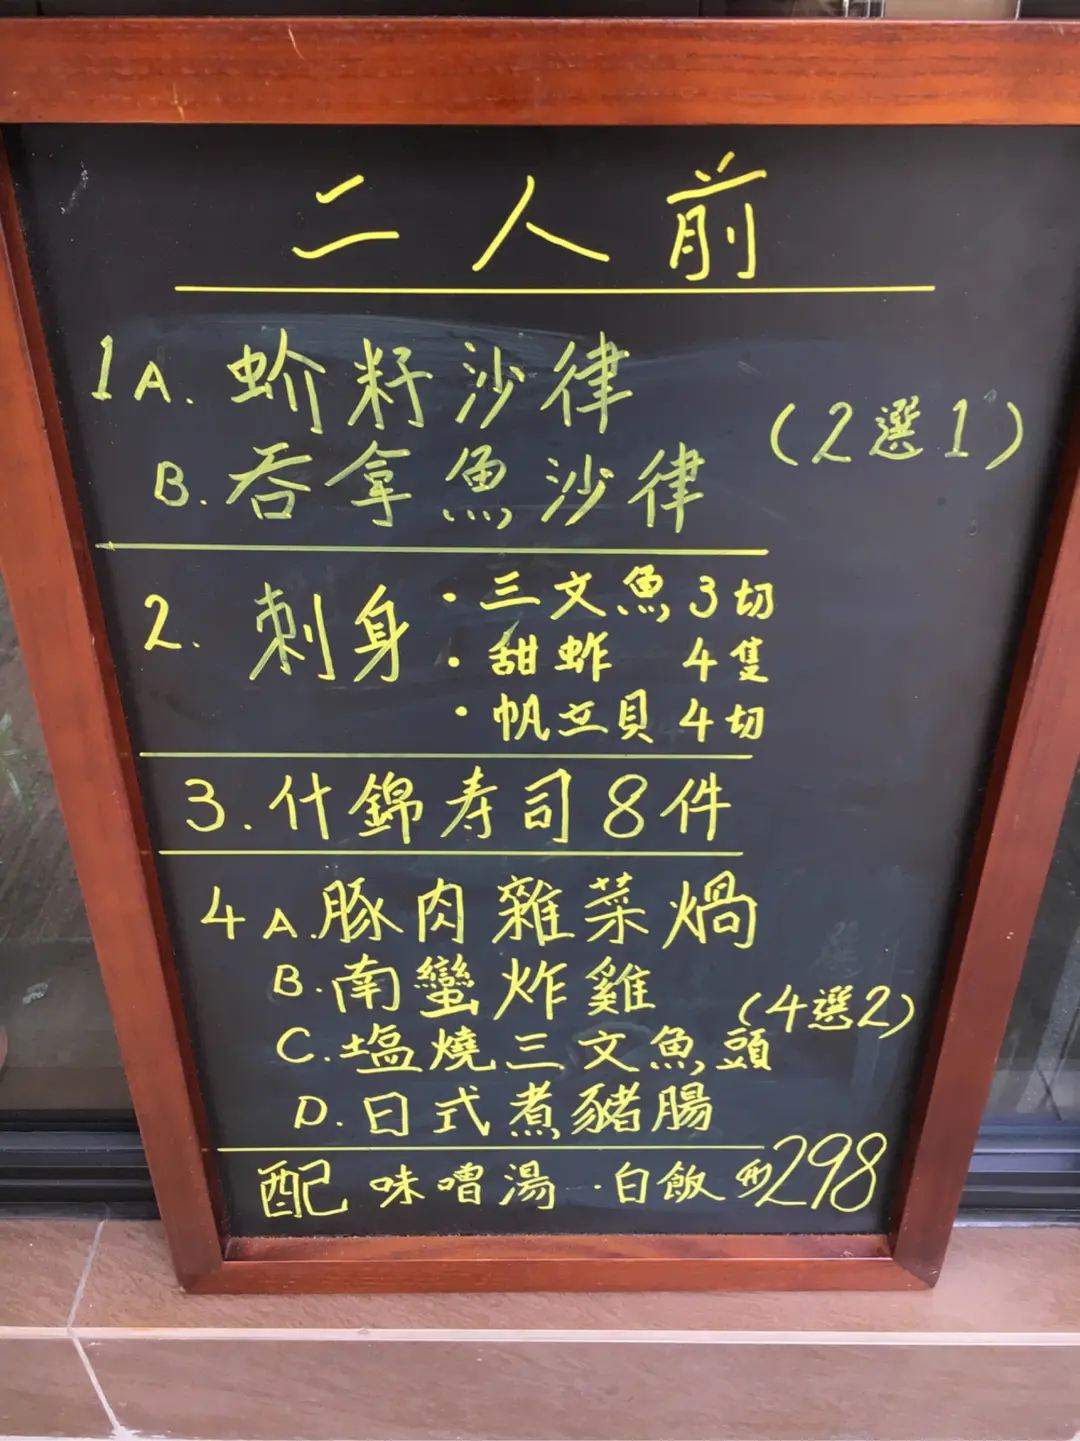 二人前
1 A. 蚧籽沙律
(2選1)
B. 吞拿魚沙律
2. 刺身 · 三文魚 3切
· 甜蚱 4隻
· 帆立貝 4切
3. 什錦寿司 8件
4 A. 豚肉雜菜煱
B. 南蠻炸雞
(4選2)
C. 塩燒三文魚頭
D. 日式煮豬腸
配 味噌湯 · 白飯 $298